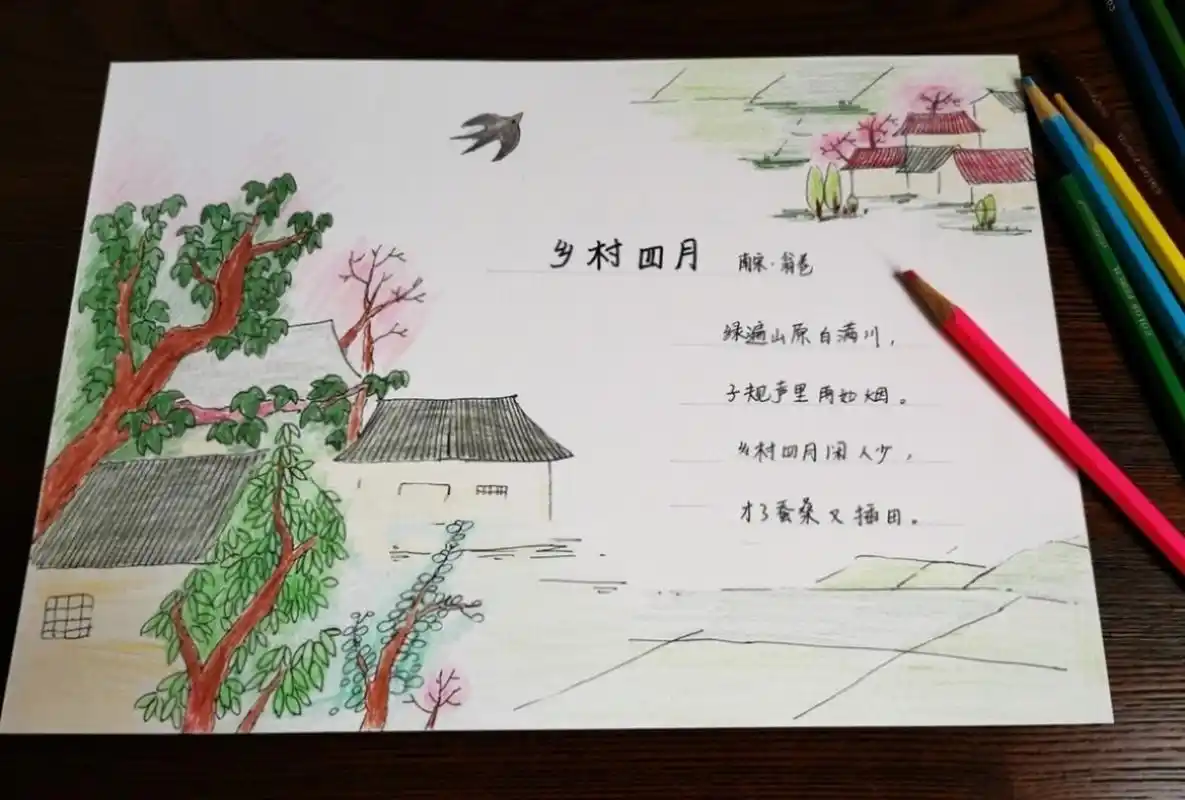 乡村四月 南宋·翁卷
绿遍山原白满川，
子规声里雨如烟。
乡村四月闲人少，
才了蚕桑又插田。